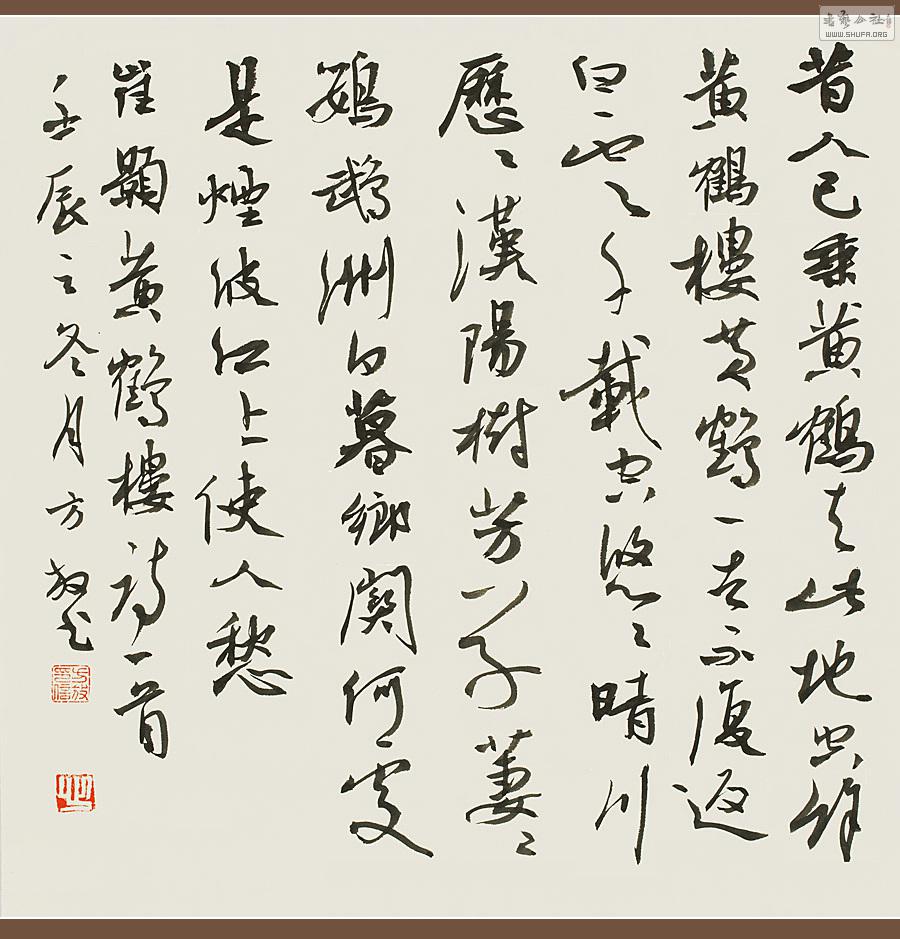 昔人已乘黄鶴去此地空餘
黄鶴樓黄鶴一去不復返
白雲千載空悠〻晴川
歷〻漢陽樹芳草萋〻
鸚鵡洲日暮鄉關何處
是煙波江上使人愁
崔顥黄鶴樓詩一首
壬辰之冬月方放書
书艺公社
WWW.SHUFA.ORG